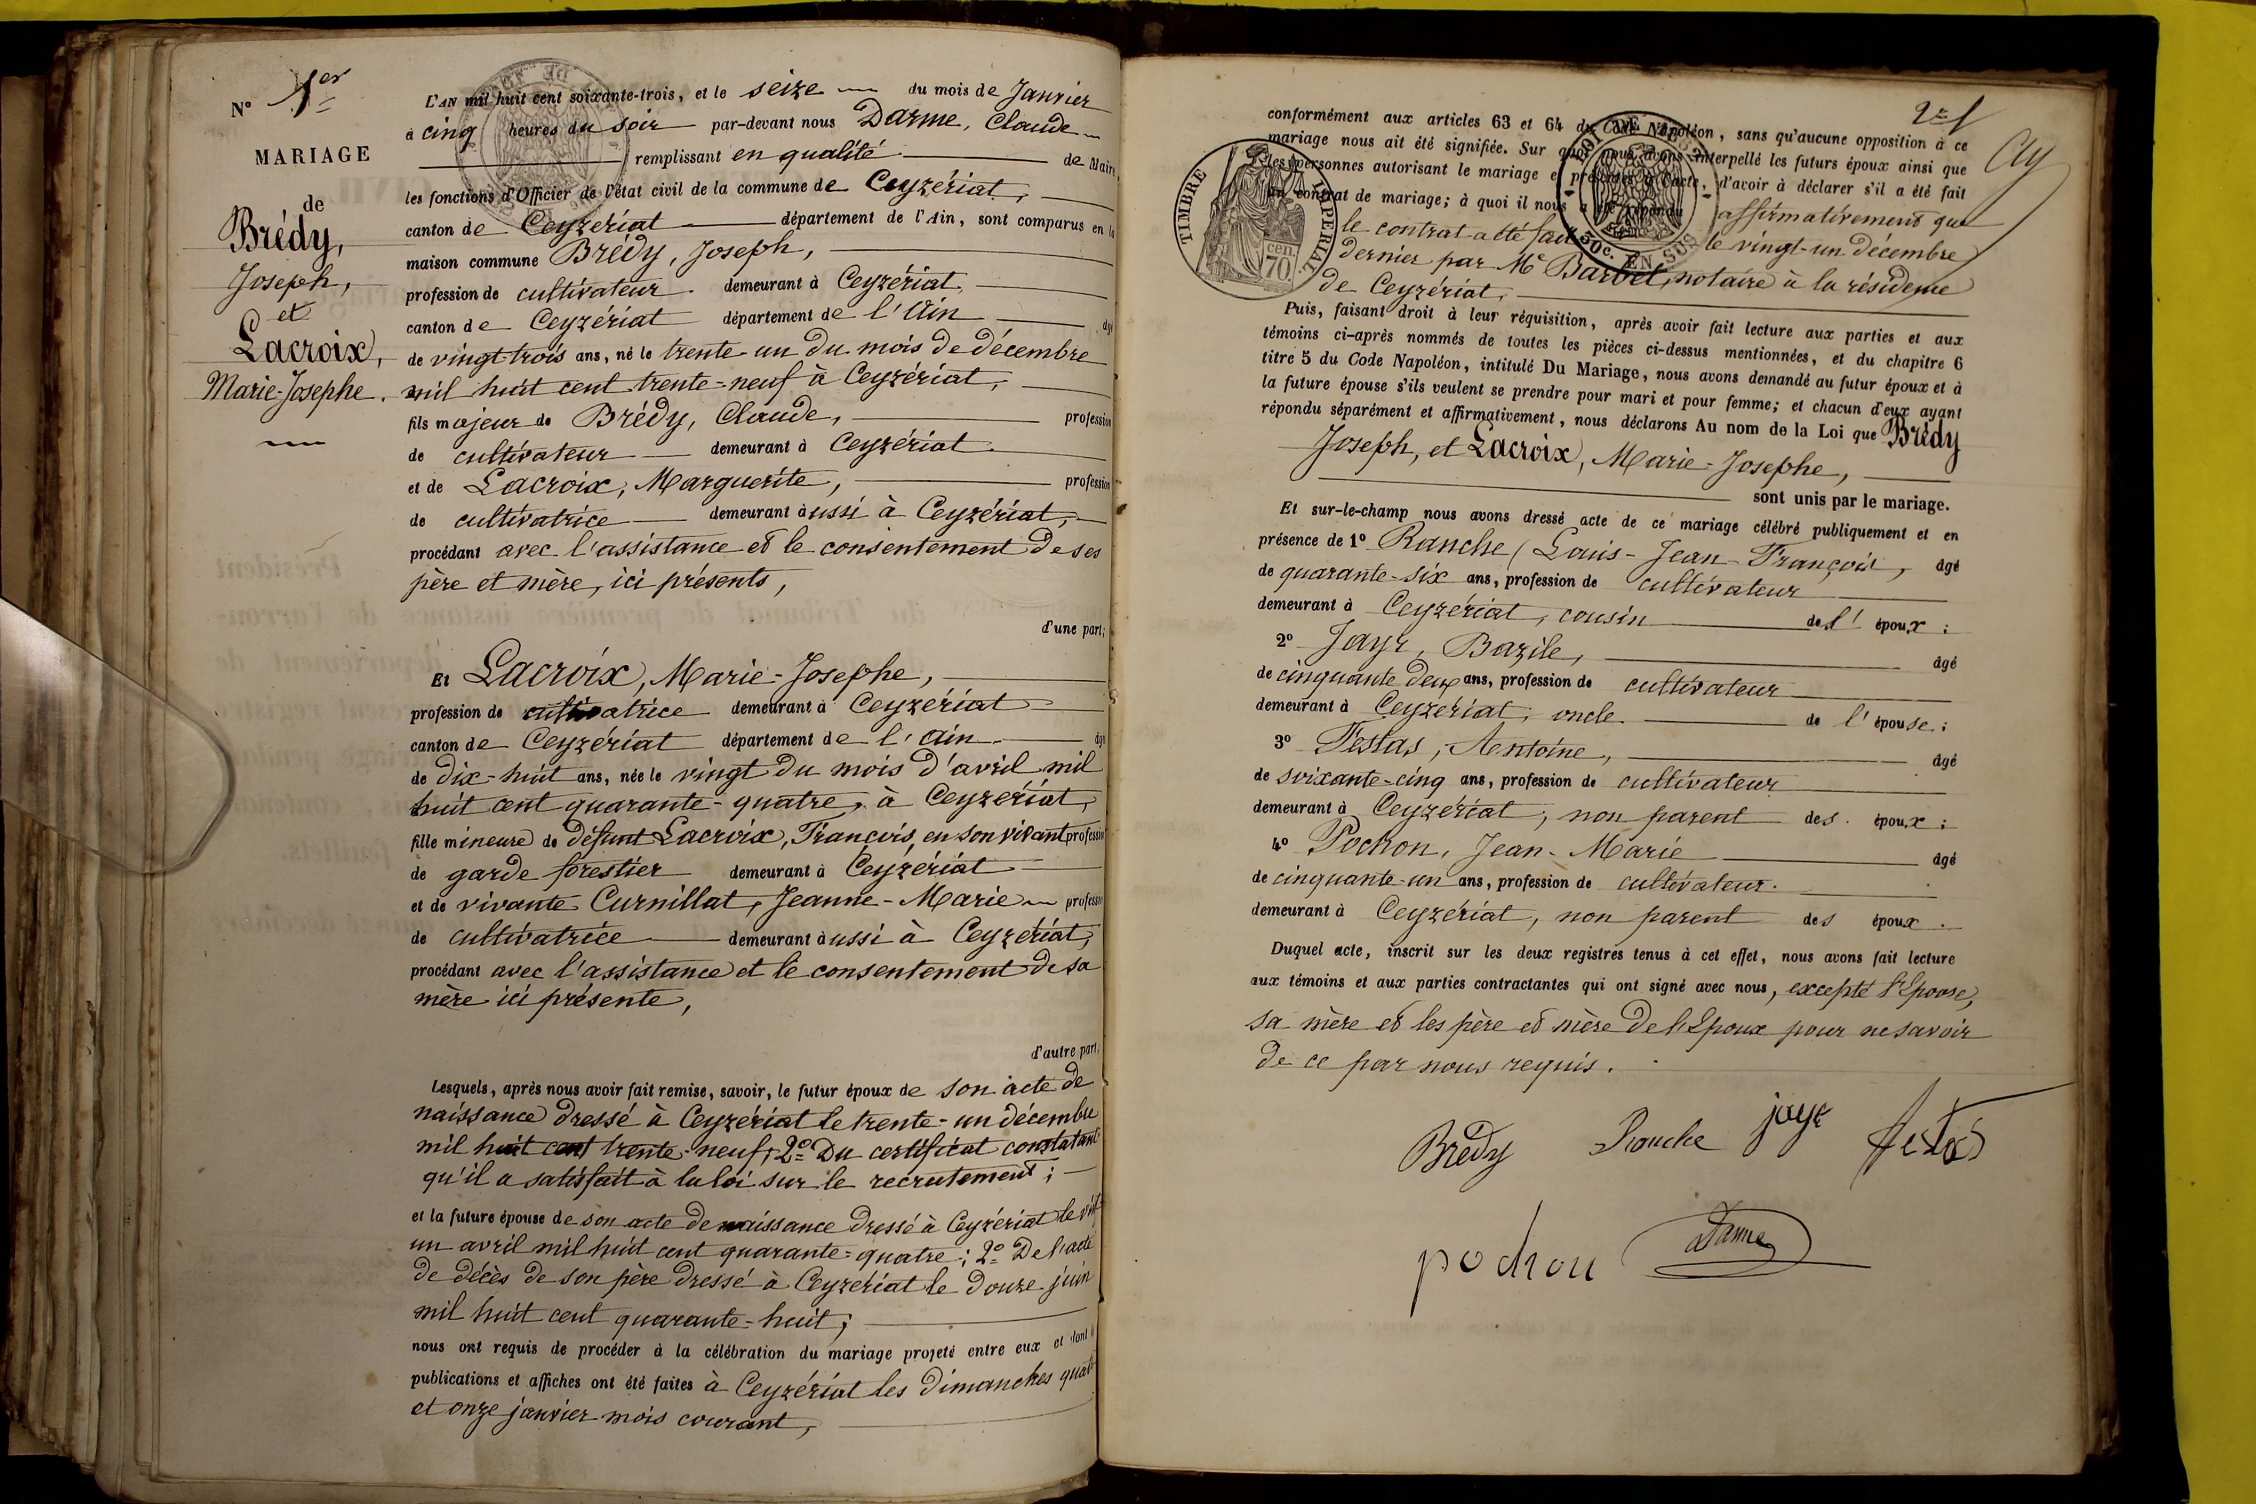 N° 1er
MARIAGE
de
Brédy,
Joseph,
et
Lacroix,
Marie-Josephe.
L'AN mil huit cent soixante-trois, et le seize du mois de Janvier
à cinq heures du soir par-devant nous Darme, Claude
remplissant en qualité de Maire
les fonctions d'Officier de l'état civil de la commune de Ceyzériat,
canton de Ceyzériat département de l'Ain, sont comparus en la
maison commune Brédy, Joseph,
profession de cultivateur demeurant à Ceyzériat,
canton de Ceyzériat département de l'Ain âgé
de vingt trois ans, né le trente-un du mois de décembre
mil huit cent trente-neuf à Ceyzériat,
fils majeur de Brédy, Claude, profession
de cultivateur demeurant à Ceyzériat
et de Lacroix, Marguerite, profession
de cultivatrice demeurant aussi à Ceyzériat,
procédant avec l'assistance et le consentement de ses
père et mère, ici présents,
d'une part;
Et Lacroix, Marie-Josephe,
profession de cultivatrice demeurant à Ceyzériat
canton de Ceyzériat département de l'Ain âgé
de dix-huit ans, née le vingt du mois d'avril mil
huit cent quarante-quatre, à Ceyzériat,
fille mineure de défunt Lacroix, François, en son vivant profession
de garde forestier demeurant à Ceyzériat
et de vivante Curnillat, Jeanne-Marie profession
de cultivatrice demeurant aussi à Ceyzériat,
procédant avec l'assistance et le consentement de sa
mère ici présente,
d'autre part.
Lesquels, après nous avoir fait remise, savoir, le futur époux de son acte de
naissance dressé à Ceyzériat le trente-un décembre
mil huit cent trente-neuf; 2° Du certificat constatant
qu'il a satisfait à la loi sur le recrutement;
et la future épouse de son acte de naissance dressé à Ceyzériat le vingt
un avril mil huit cent quarante-quatre; 2° De l'acte
de décès de son père dressé à Ceyzériat le douze juin
mil huit cent quarante-huit;
nous ont requis de procéder à la célébration du mariage projeté entre eux et dont
publications et affiches ont été faites à Ceyzériat les dimanches quatre
et onze janvier mois courant,
conformément aux articles 63 et 64 du Code Napoléon, sans qu'aucune opposition à ce
mariage nous ait été signifiée. Sur quoi nous avons interpellé les futurs époux ainsi que
les personnes autorisant le mariage et présentes à l'acte, d'avoir à déclarer s'il a été fait
un contrat de mariage; à quoi il nous a été répondu affirmativement que
le contrat a été fait le vingt-un décembre
dernier par Me Barbet, notaire à la résidence
de Ceyzériat,
TIMBRE IMPERIAL
70 cen.
50c. EN SUS
Puis, faisant droit à leur réquisition, après avoir fait lecture aux parties et aux
témoins ci-après nommés de toutes les pièces ci-dessus mentionnées, et du chapitre 6
titre 5 du Code Napoléon, intitulé Du Mariage, nous avons demandé au futur époux et à
la future épouse s'ils veulent se prendre pour mari et pour femme; et chacun d'eux ayant
répondu séparément et affirmativement, nous déclarons Au nom de la Loi que Brédy
Joseph, et Lacroix, Marie-Josephe,
sont unis par le mariage.
Et sur-le-champ nous avons dressé acte de ce mariage célébré publiquement et en
présence de 1° Ranche (Louis-Jean-François, âgé
de quarante-six ans, profession de cultivateur
demeurant à Ceyzériat, cousin de l' époux;
2° Jayr, Bazile, âgé
de cinquante deux ans, profession de cultivateur
demeurant à Ceyzériat, oncle de l' épouse;
3° Festas, Antoine, âgé
de soixante-cinq ans, profession de cultivateur
demeurant à Ceyzériat, non parent des époux;
4° Pochon, Jean-Marie âgé
de cinquante-un ans, profession de cultivateur.
demeurant à Ceyzériat, non parent des époux.
Duquel acte, inscrit sur les deux registres tenus à cet effet, nous avons fait lecture
aux témoins et aux parties contractantes qui ont signé avec nous, excepté l'Epouse,
sa mère et les père et mère de l'Epoux pour ne savoir
de ce par nous requis.
Brédy Ranche jayr festas
pochon Darme